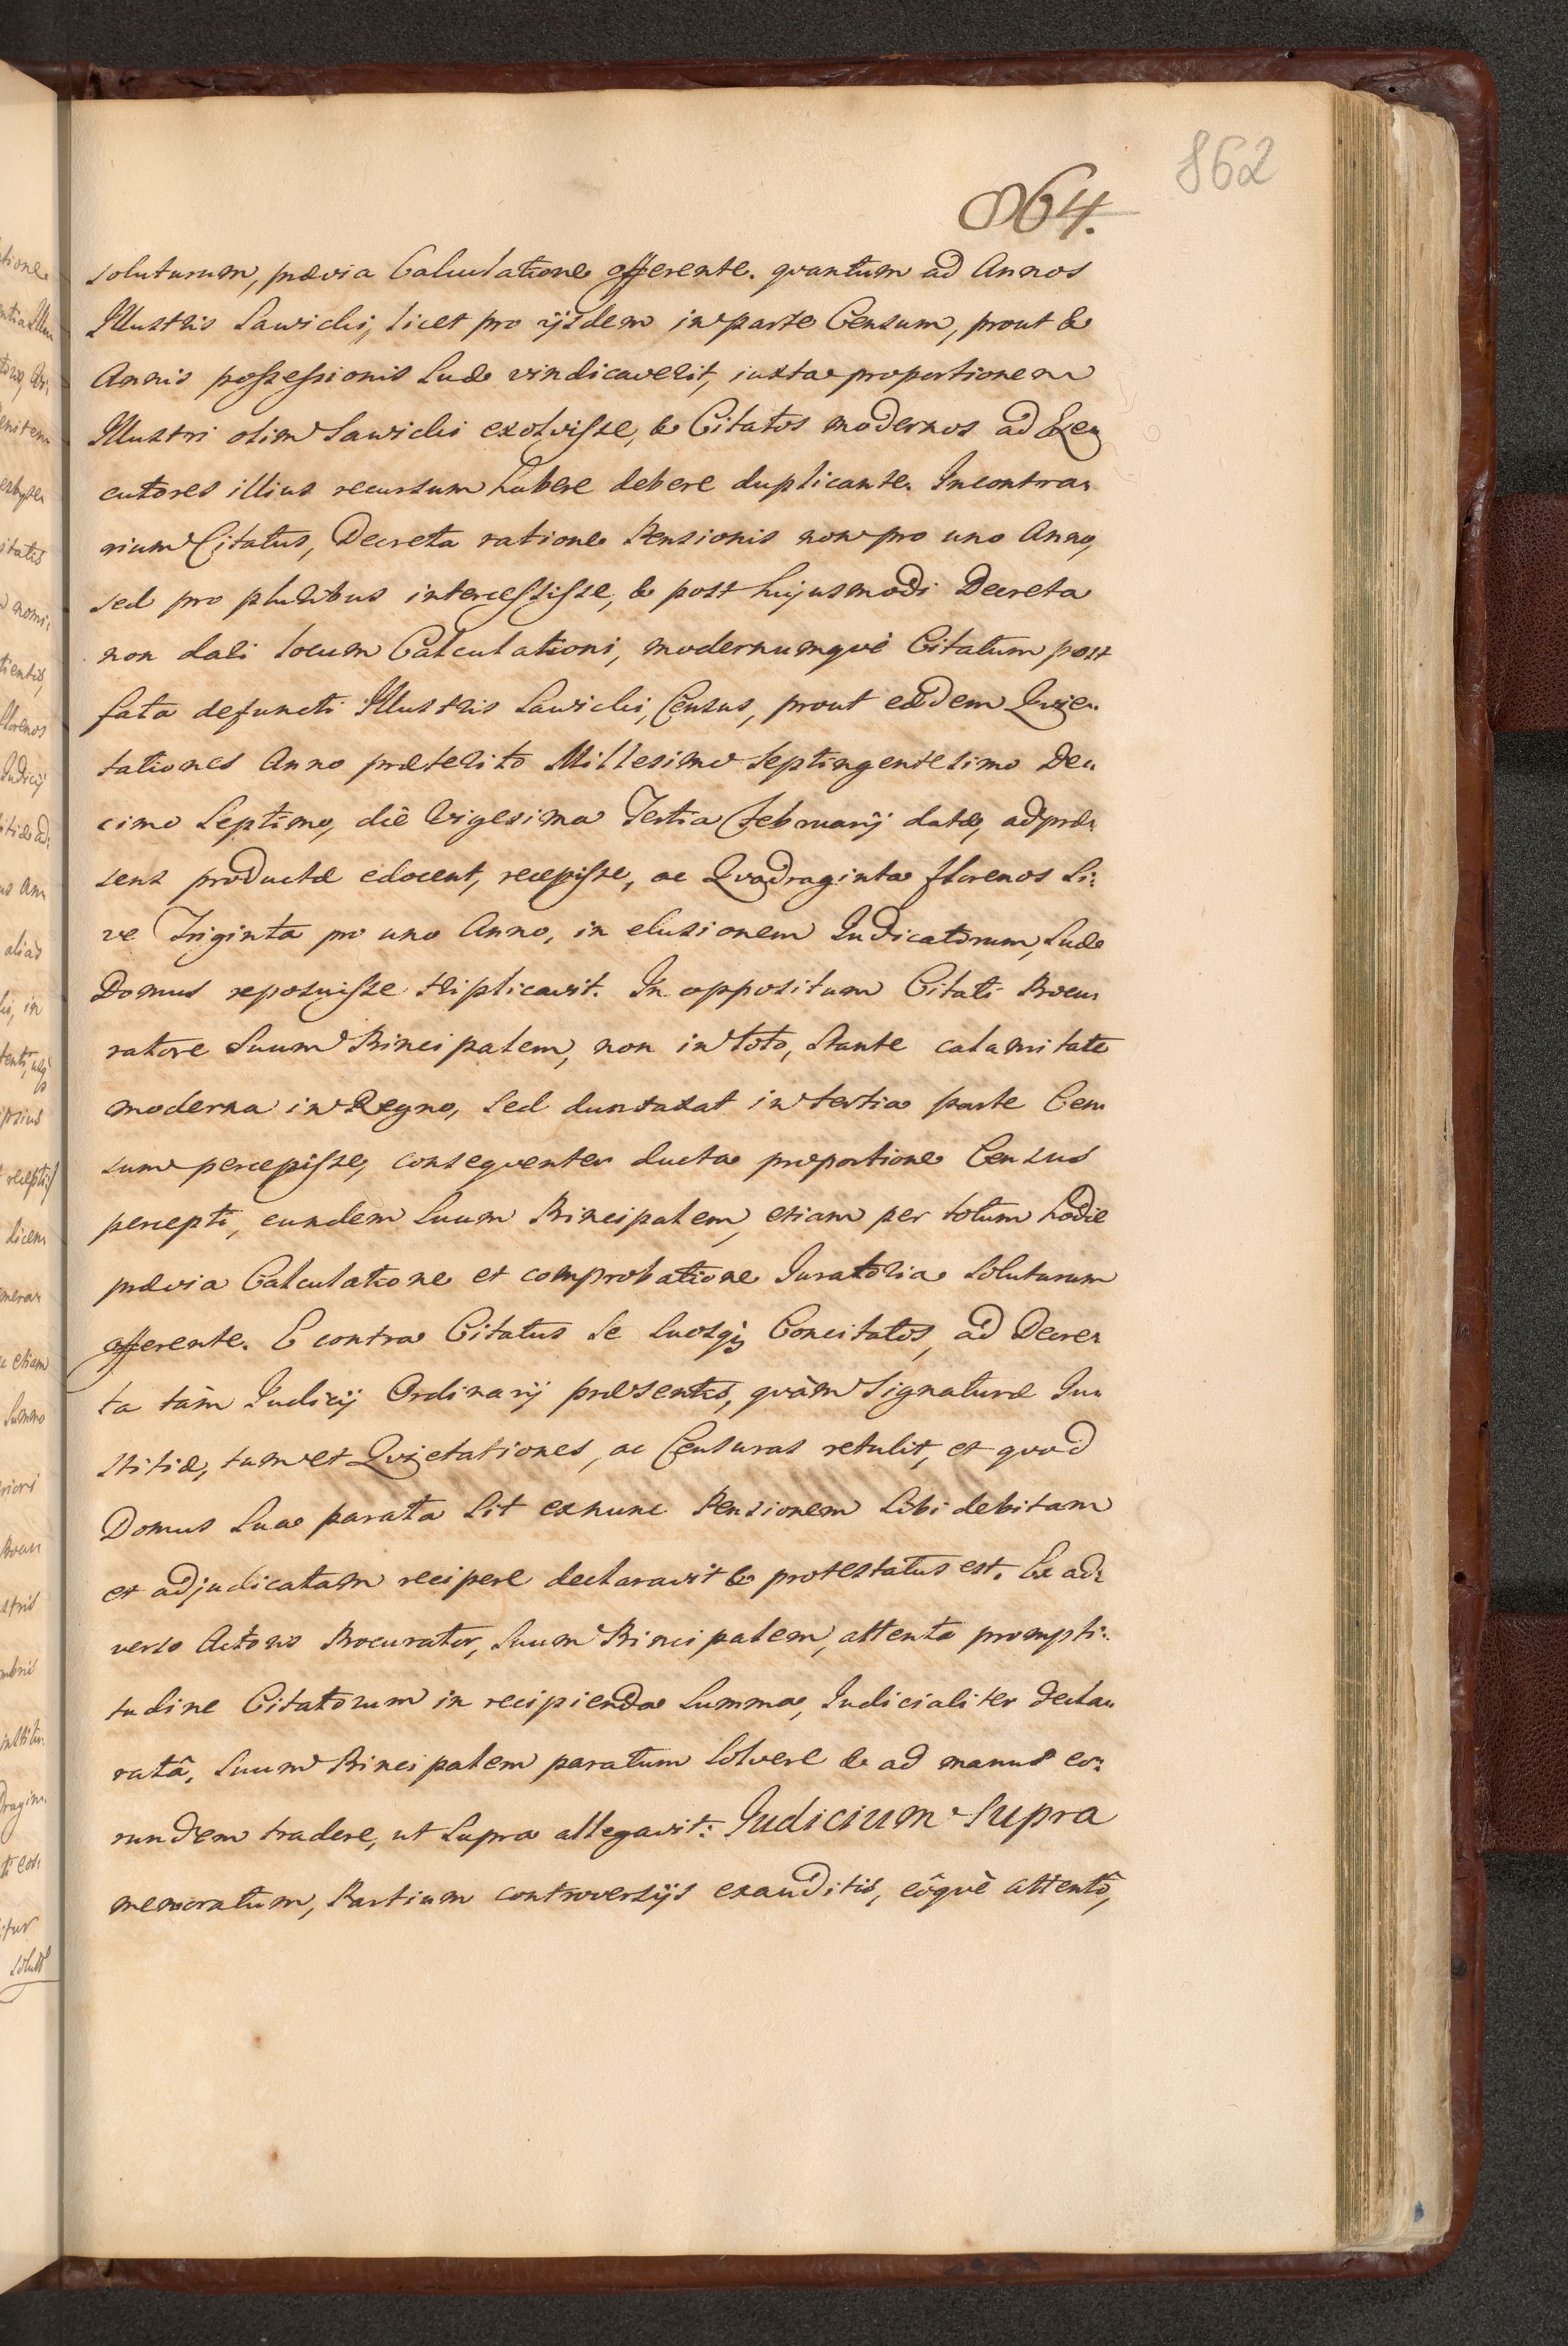 862
864.
soluturum, prævia Calculatione offerente. quantum ad Annos
Illustris Sawicki, licet pro ijsdem in parte Censum, prout &
Annis possessionis suæ vindicaverit, iuxta proportionem
Illustri olim Sawicki exolvisse, & Citatos modernos ad Exe„
cutores illius recursum habere debere duplicante. Incontra„
rium Citatus, Decreta ratione Pensionis non pro uno Anno,
sed pro pluribus intercessisse, & post hujusmodi Decreta
non dari locum Calculationi, modernumqvè Citatum post
fata defuncti Illustris Sawicki, Census, prout eædem Qvie„
tationes Anno præterito Millesimo Septingentesimo De„
cimo Septimo, diê Vigesima Tertia Februarij datæ, ad præ„
sens productæ edocent, recepisse, ac Qvadraginta florenos si:
ve Triginta pro uno Anno, in elusionem Iudicatorum, suæ
Domus reposuisse triplicavit. In oppositum Citati Procu„
ratore suum Principalem, non in toto, stante calamitate
moderna in Regno, sed duntaxat in tertia parte Cen„
sum percepisse, conseqventer ducta proportione Census
percepti, eundem suum Principalem, etiam per totum hodie
prævia Calculatione et comprobatione Iuratoria soluturum
offerente. E contra Citatus se suosq3 Concitatos, ad Decre„
ta tàm Iudicij Ordinarij præsentes, qvàm Signaturæ Iu„
stitiæ, tum et Qvietationes, ac Censuras retulit, et qvod
Domus sua parata sit exnunc Pensionem sibi debitam
et adjudicatam recipere declaravit & protestatus est. Ex ad:
verso Actoris Procurator, suum Principalem, attenta prompti:
tudine Citatorum in recipienda summa, Iudicialiter decla„
ratâ, suum Principalem paratum solvere & ad manus eo:
rundem tradere, ut supra allegavit: Iudicium supra
memoratum, Partium controversijs exauditis, eôqvè attentô,